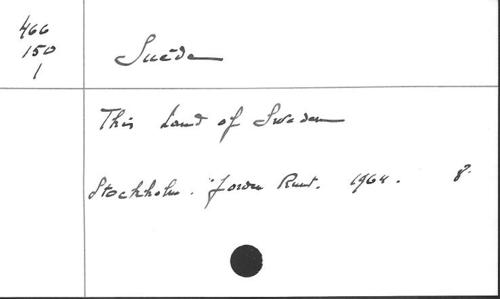 466
150
1
Suède
This Land of Sweden
Stockholm. Jorden Runt. 1964. 8.